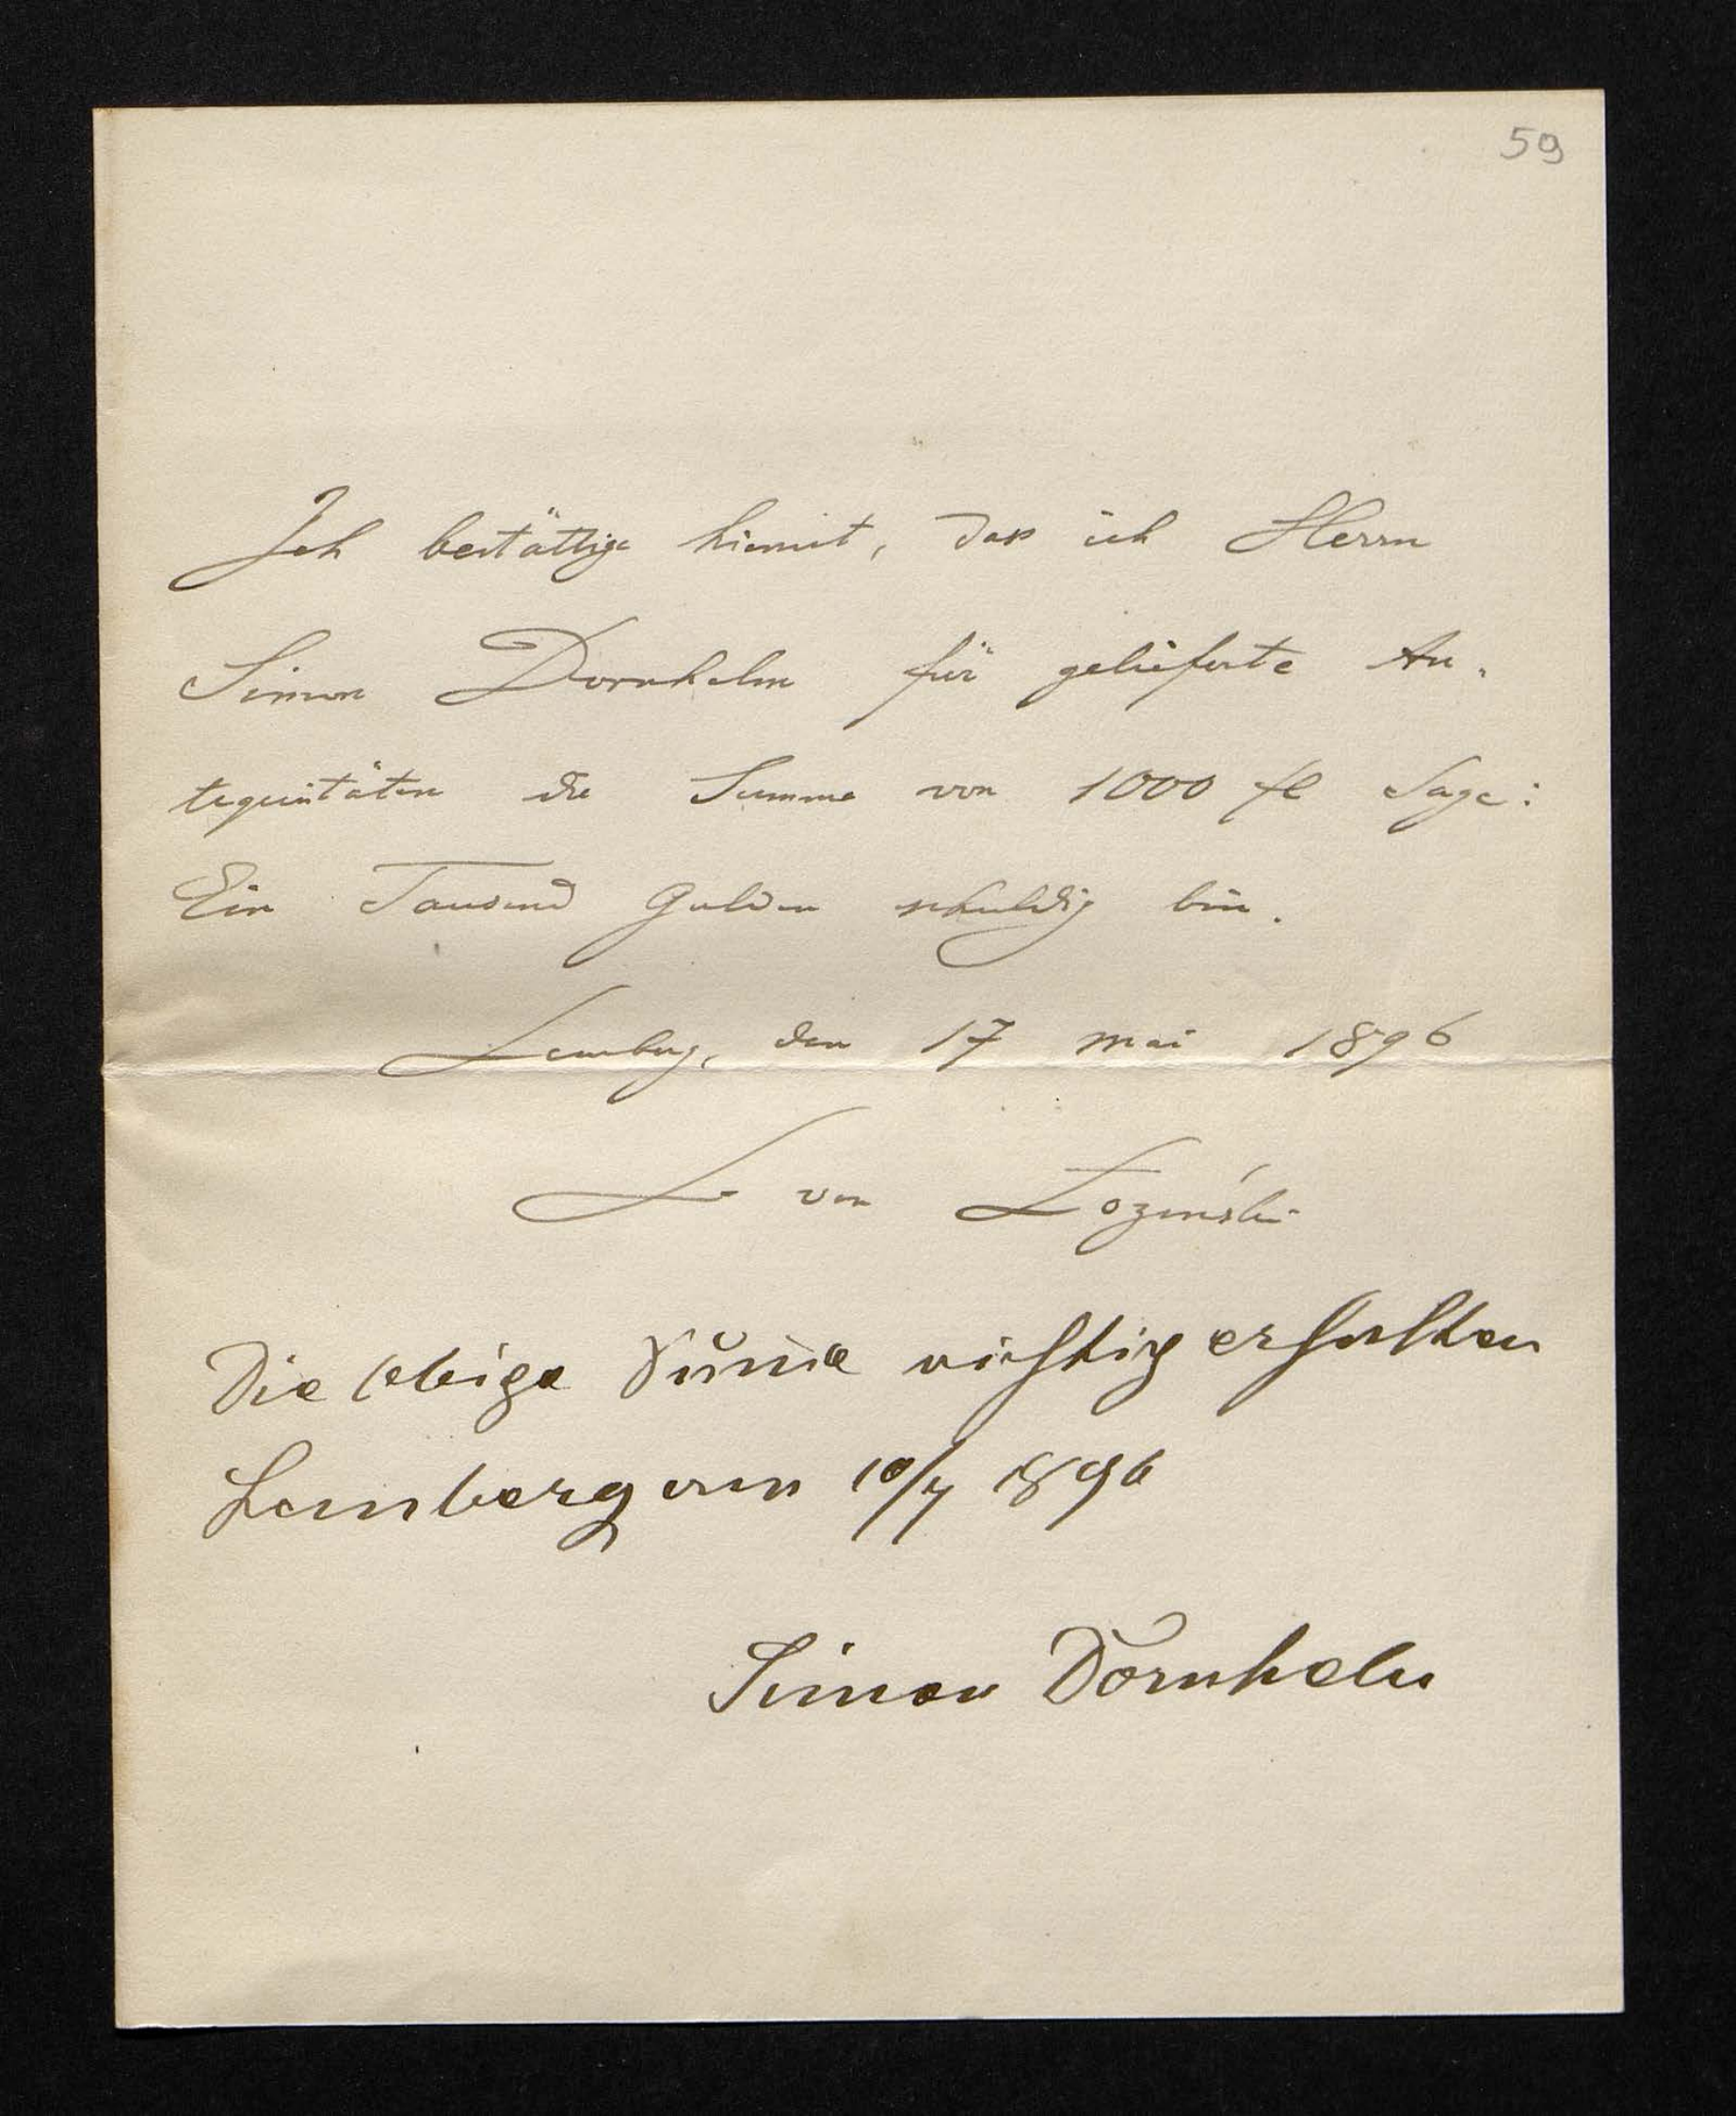 59
Ich bestättige hiemit, dass ich Herrn
Simon Dornhelm für gelieferte An-
tequitäten die Summe von 1000 fl Sage:
Ein Tausend Gulden schuldig bin.
Lemberg, den 17 Mai 1896
L von Łoziński
Die obige Sum̄e richtig erhalten
Lemberg am 10/7 1896
Simon Dornhelm